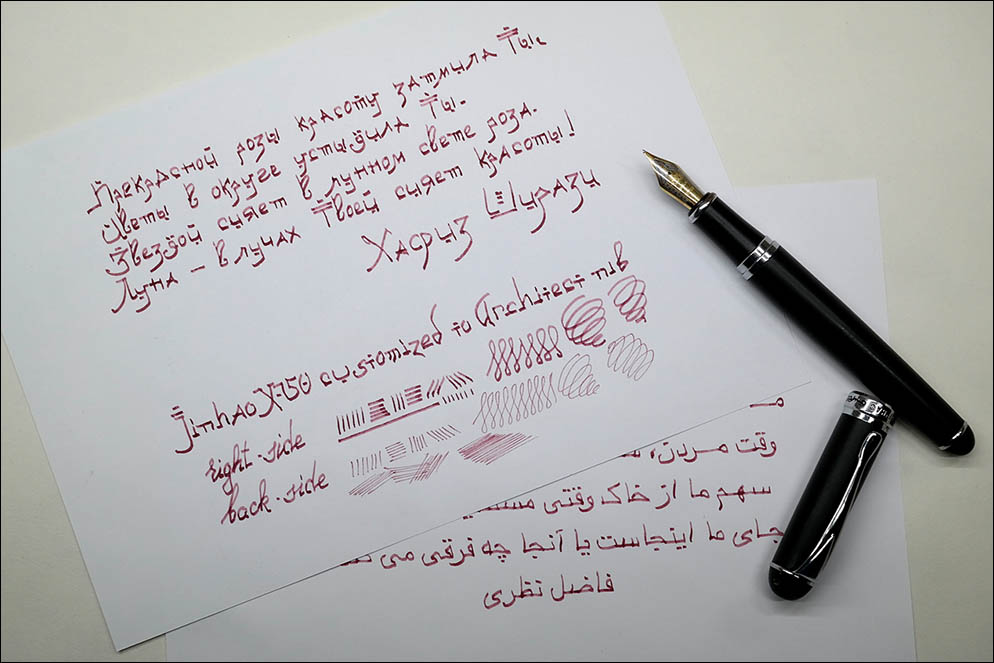 Прекрасной розы красоту затмила Ты,
Цветы в округе устыдила Ты.
Звездой сияет в лунном свете роза.
Луна – в лучах Твоей сияет красоты!
Хафиз Ширази
Jinhao X-750 customized to Architect nib
right-side
back-side
وقت مردن،
سهم ما از خاک وقتی
جای ما اینجاست یا آنجا چه فرقی می
فاضل نظری